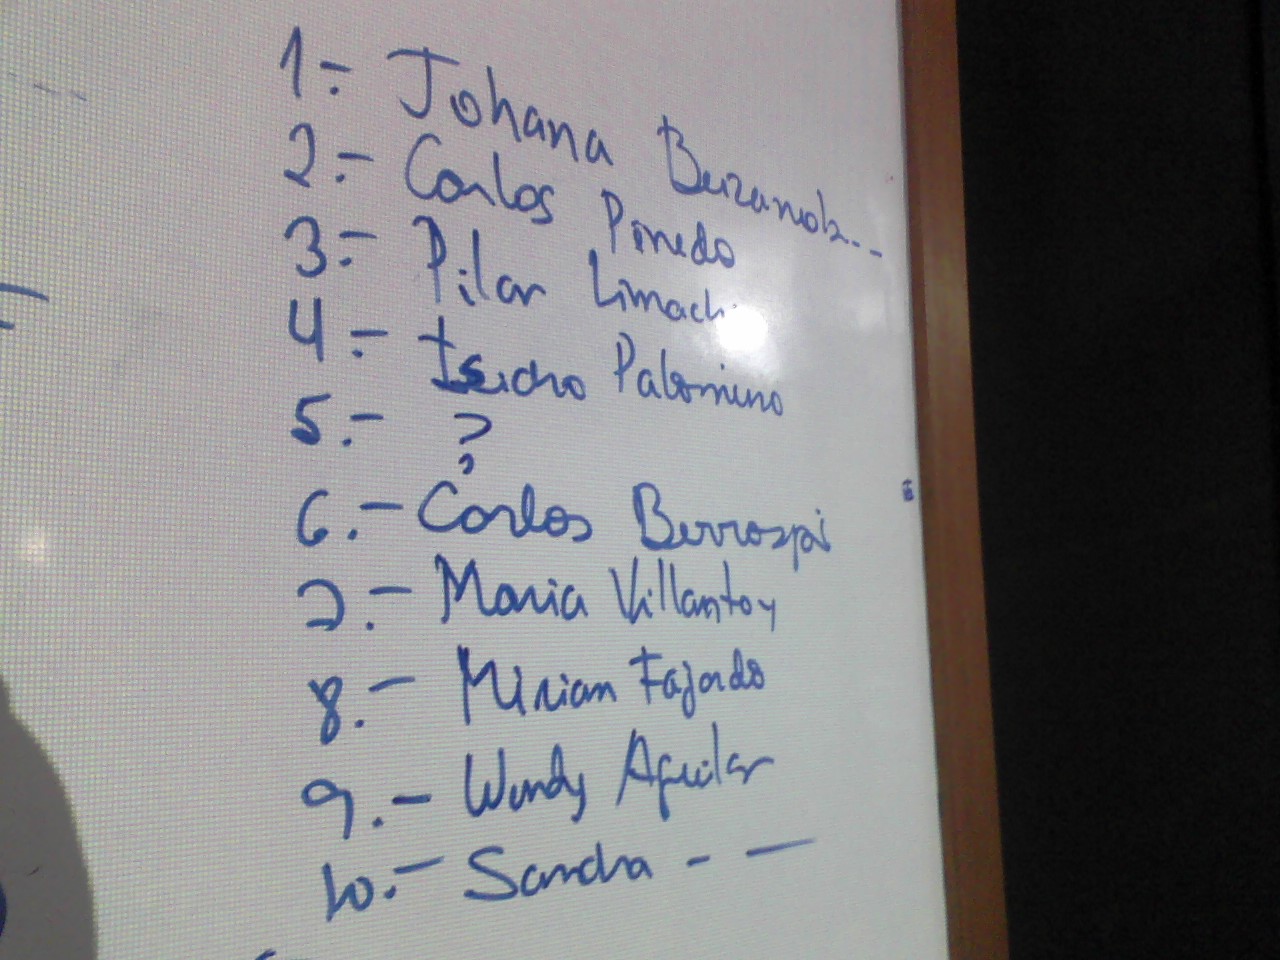 1.- Johana
2.- Carlos Pinedo
3.- Pilar Limachi
4.- Isidro Palomino
5.- ?
6.- Carlos Berrospi
7.- Maria Villantoy
8.- Mirian Fajardo
9.- Wendy Aguilar
10.- Sandra - —